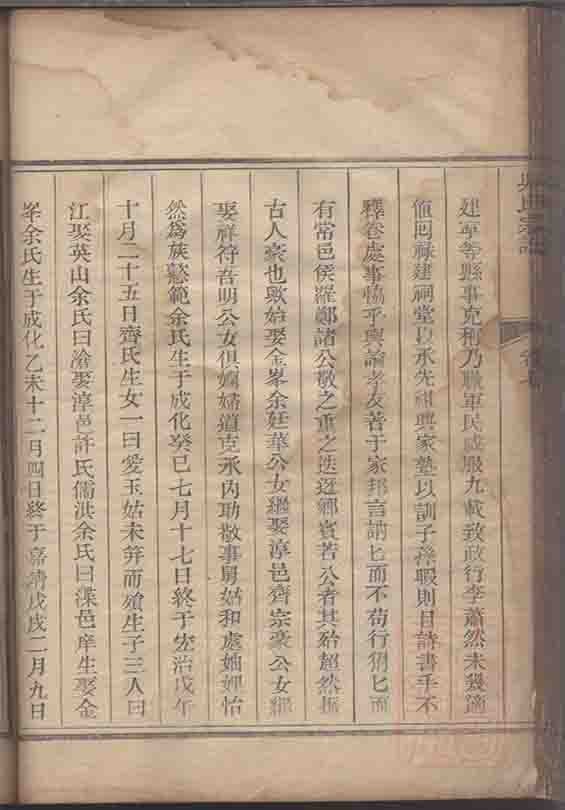 吳氏宗譜
卷七
建寧等縣事克稱乃職軍民咸服九載致政行李蕭然未幾適
值悶祿建祠堂以承先祖興家塾以訓子孫暇則目詩書手不
釋卷處事協乎輿論孝友著于家邦言訥匕而不苟行循匕而
有常邑侯羅鄭諸公敬之重之迭迓鄉賓若公者其殆超然振
古人豪也歟始娶金峯余廷華公女繼娶淳邑齊宗豪公女繼
娶祥符吾明公女俱嫻婦道克承內助敬事舅姑和處妯娌怡
然為族懿範余氏生于成化癸巳七月十七日終于宏治戊午
十月二十五日齊氏生女一曰愛玉姑未笄而殤生子三人曰
江娶英山余氏曰滄娶淳邑許氏儒洪余氏曰渫邑庠生娶金
峯余氏生于成化乙未十二月四日終于嘉靖戊戌二月九日